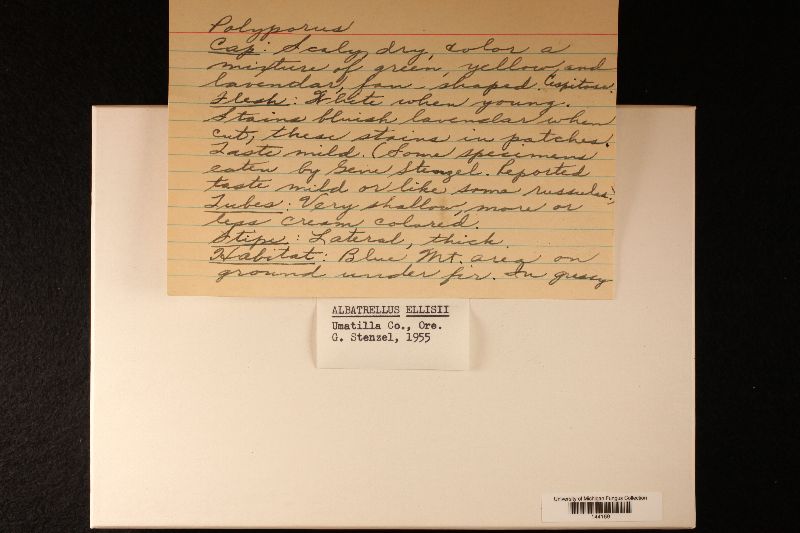 Polyporus
Cap: Scaly, dry, color a
mixture of green, yellow, and
lavendar, fan shaped. Cespitose.
Flesh: White when young.
Stains bluish lavendar when
cut, these stains in patches.
Taste mild. (Some specimens
eaten by Gene Stenzel. Reported
taste mild or like some russulas).
Tubes: Very shallow, more or
less cream colored.
Stipe: Lateral, thick.
Habitat: Blue Mt. area on
ground under fir. In grassy
ALBATRELLUS ELLISII
Umatilla Co., Ore.
G. Stenzel, 1955
University of Michigan Fungus Collection